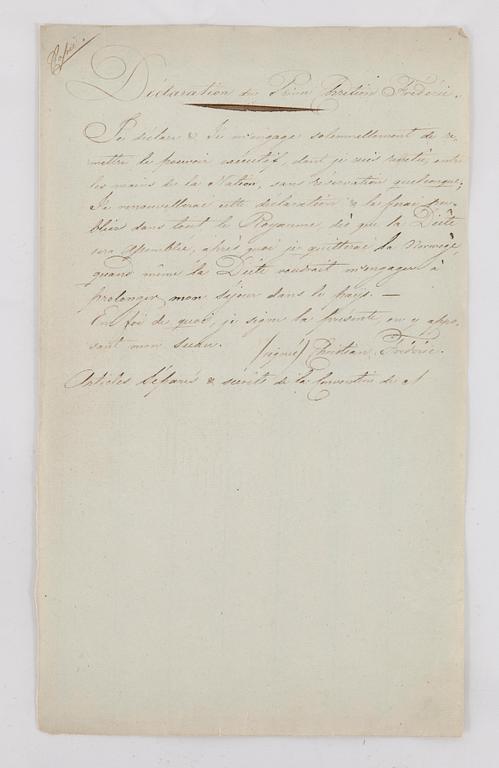 Copie.
Déclaration du Prince Chrétien Frédéric.
Je déclare & Je m'engage solennellement de re-
mettre le pouvoir exécutif, dont je suis revêtu, entre
les mains de la Nation, sans réservation quelconque;
Je renouvellerai cette déclaration & la ferai pu-
blier dans tout le Royaume, dès que la Diète
sera assemblée, après quoi je quitterai la Norwège,
quand même la Diète voudrait m'engager à
prolonger mon séjour dans le pays. —
En foi de quoi, je signe la présente, en y appo-
sant mon sceau. (signé) Christian Frédéric.
Articles séparés & secrèts de la Convention de